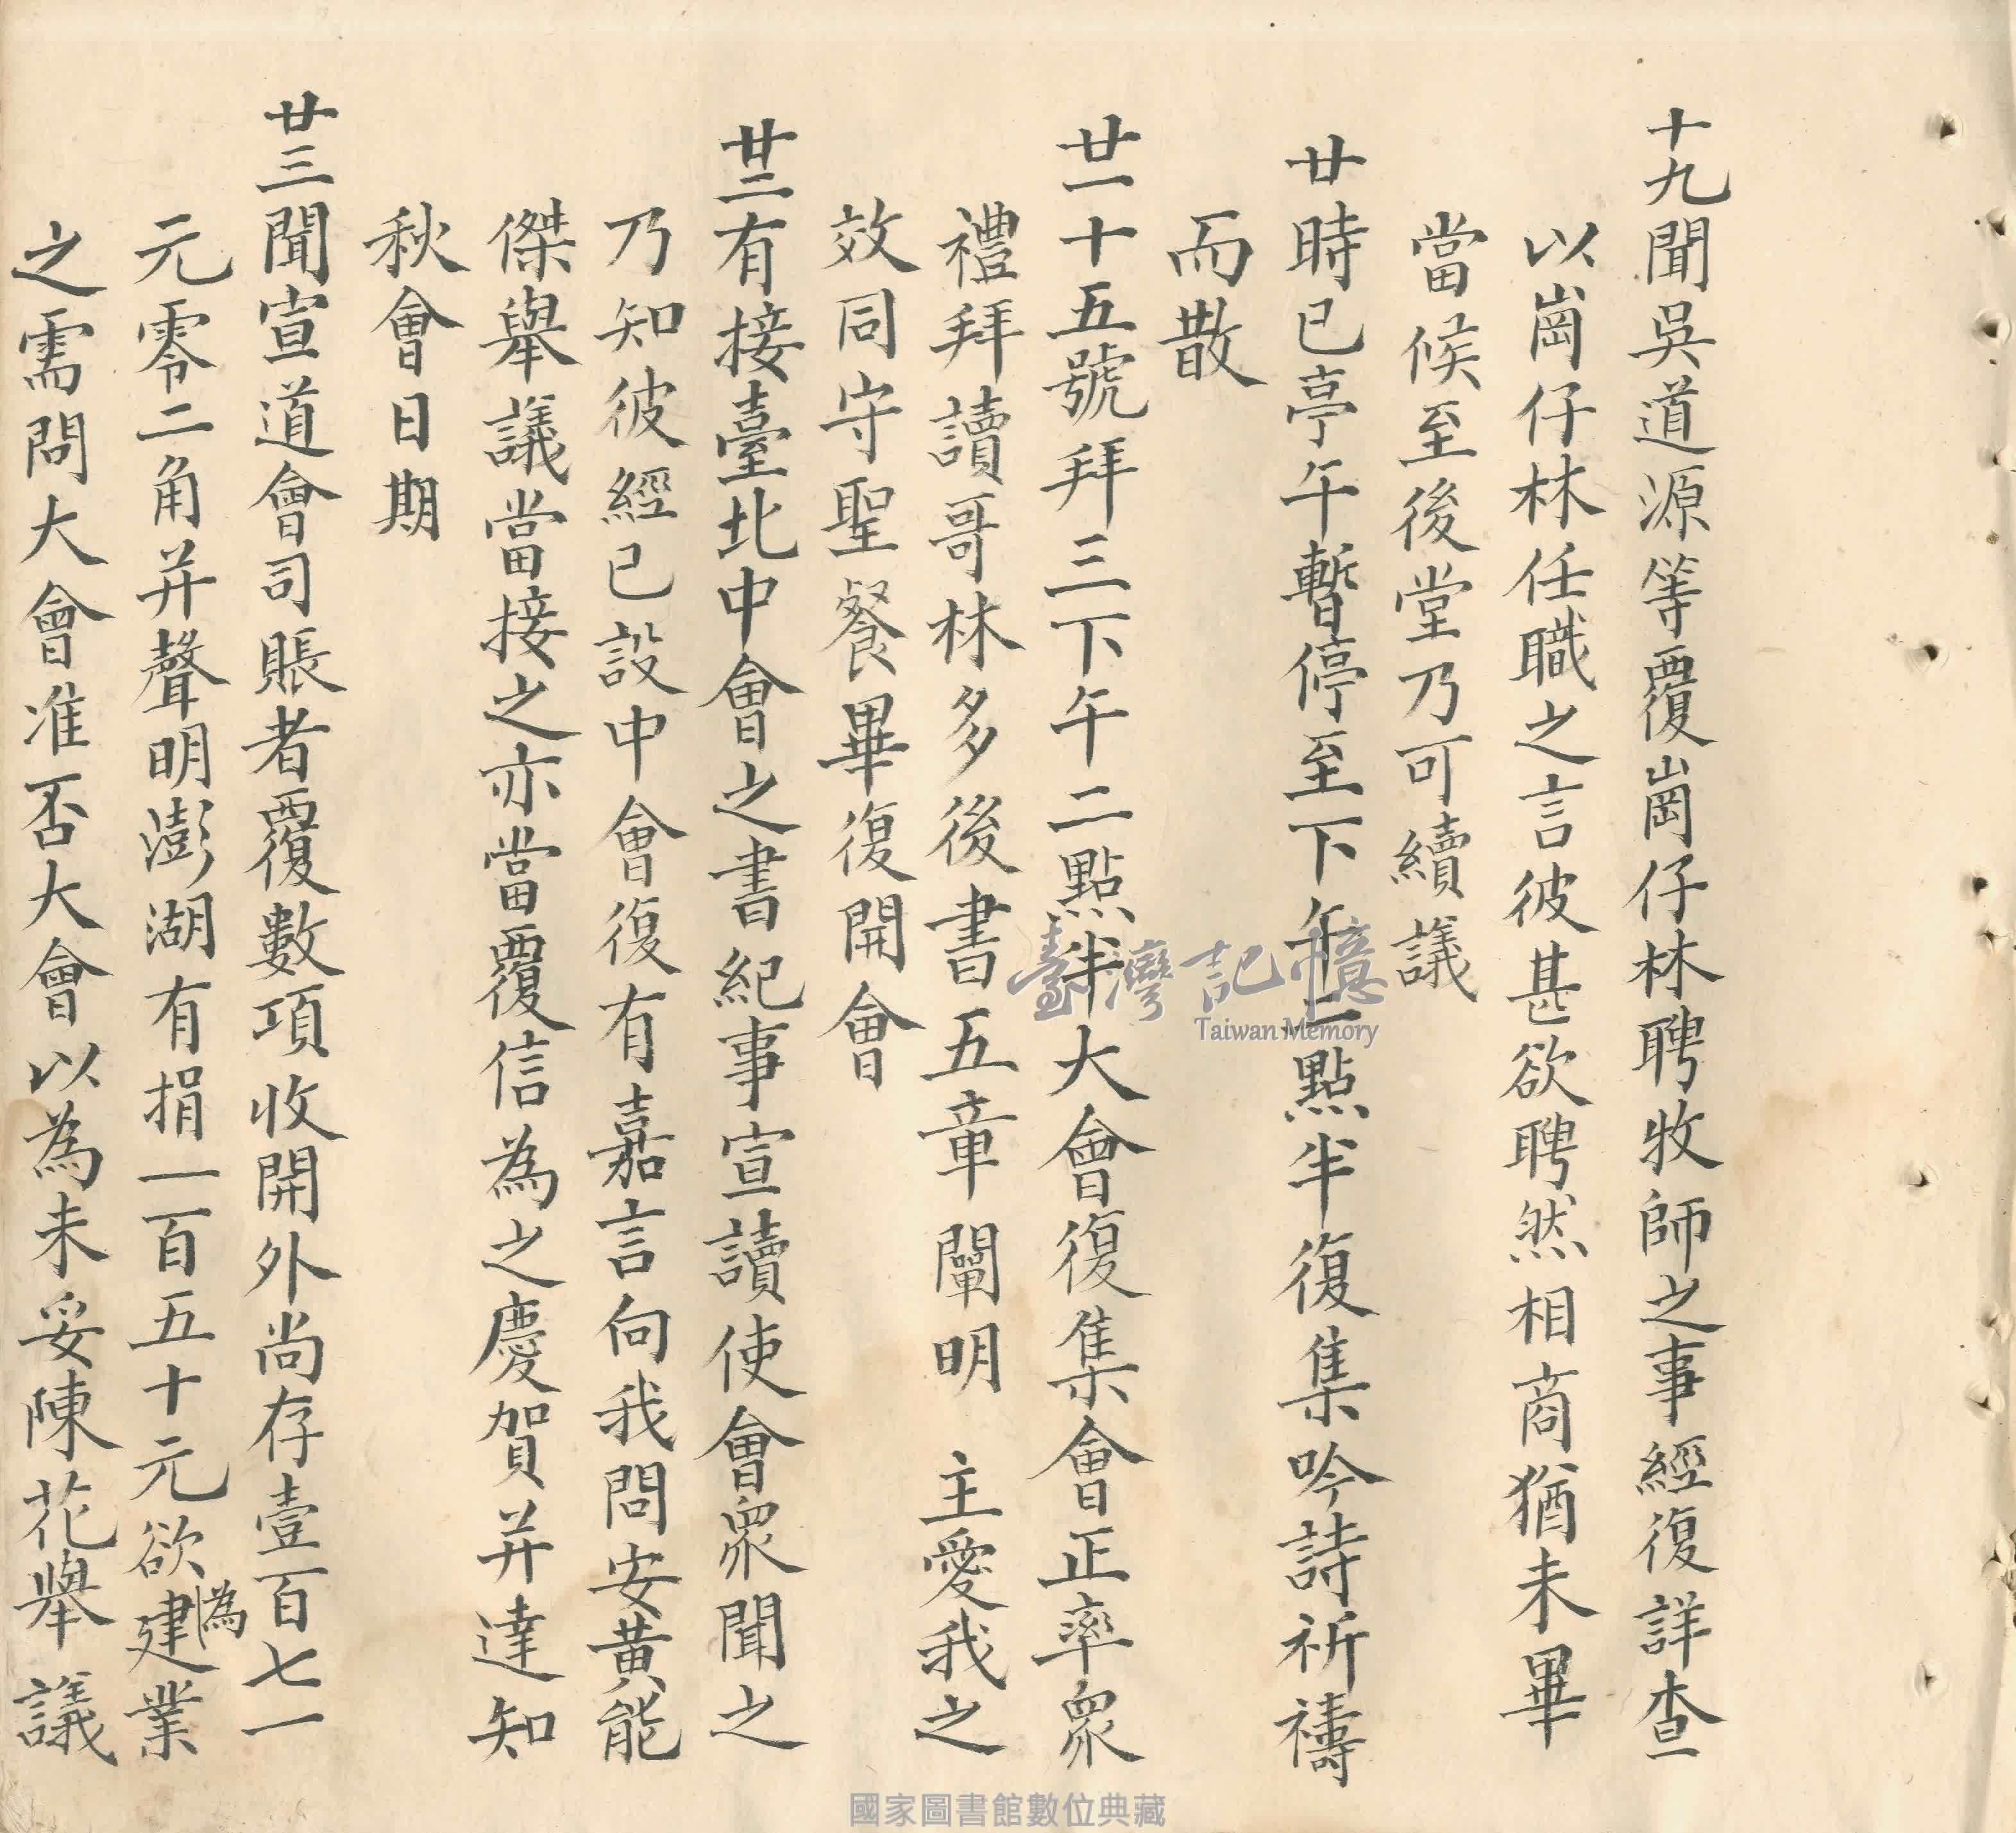 十九聞吳道源等覆崗仔林聘牧師之事經復詳查
以崗仔林任職之言彼甚欲聘然相商猶未畢
當候至後堂乃可續議
廿時已亭午暫停至下午二點半復集吟詩祈禱
而散
廿一十五號拜三下午二點半大會復集會正率眾
禮拜讀哥林多後書五章闡明　主愛我之
效同守聖餐畢復開會
廿二有接臺北中會之書紀事宣讀使會眾聞之
乃知彼經已設中會復有嘉言向我問安黃能
傑舉議當接之亦當覆信為之慶賀并達知
秋會日期
廿三聞宣道會司賬者覆數項收開外尚存壹百七一
元零二角并聲明澎湖有捐一百五十元欲為建業
之需問大會准否大會以為未妥陳花舉議
臺灣記憶
Taiwan Memory
國家圖書館數位典藏